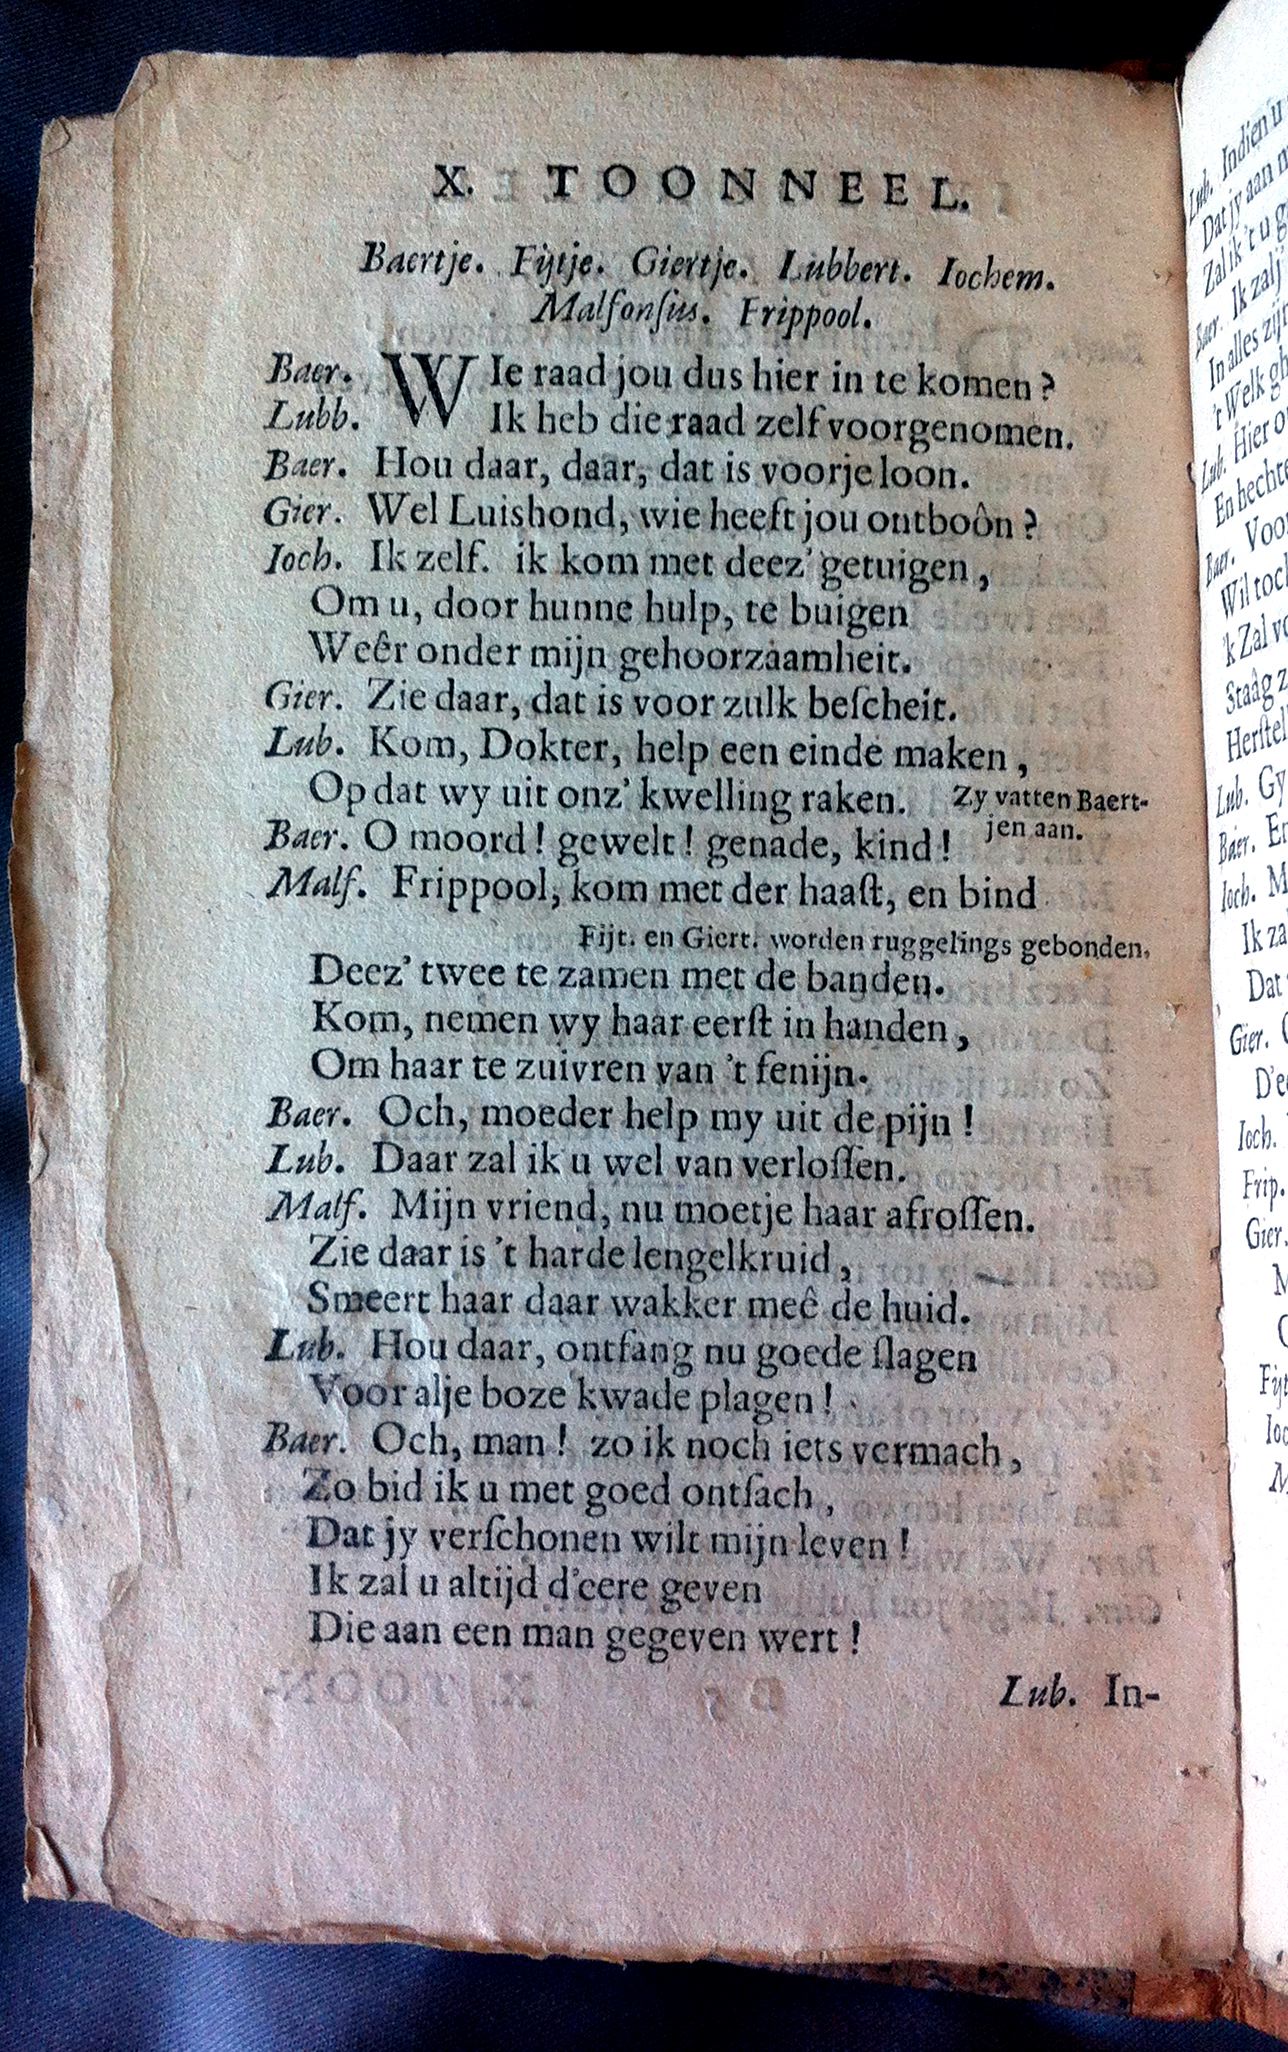 X. TOONNEEL.
Baertje. Fijtje. Giertje. Lubbert. Iochem.
Malfonſius. Frippool.
Baer. WIe raad jou dus hier in te komen?
Lubb. Ik heb die raad zelf voorgenomen.
Baer. Hou daar, daar, dat is voorje loon.
Gier. Wel Luishond, wie heeft jou ontboôn?
Ioch. Ik zelf. ik kom met deez' getuigen,
Om u, door hunne hulp, te buigen
Weêr onder mijn gehoorzaamheit.
Gier. Zie daar, dat is voor zulk beſcheit.
Lub. Kom, Dokter, help een einde maken,
Opdat wy uit onz' kwelling raken. Zy vatten Baert-
jen aan.
Baer. O moord! gewelt! genade, kind!
Malf. Frippool, kom met der haaſt, en bind
Fijt. en Giert. worden ruggelings gebonden.
Deez' twee te zamen met de banden.
Kom, nemen wy haar eerſt in handen,
Om haar te zuivren van 't fenijn.
Baer. Och, moeder help my uit de pijn!
Lub. Daar zal ik u wel van verloſſen.
Malf. Mijn vriend, nu moetje haar afroſſen.
Zie daar is 't harde lengelkruid,
Smeert haar daar wakker meê de huid.
Lub. Hou daar, ontfang nu goede ſlagen
Voor alje boze kwade plagen!
Baer. Och, man! zo ik noch iets vermach,
Zo bid ik u met goed ontſach,
Dat jy verſchonen wilt mijn leven!
Ik zal u altijd d'eere geven
Die aan een man gegeven wert!
Lub. In-
Lub. Indien u
Dat jy aan m
Zal ik 't u g
Baer. Ik zal j
In alles zijn
't Welk gh
Lub. Hier o
En hechte
Baer. Voor
Wil toch
'k Zal vo
Staâg z
Herſtel
Lub. Gy
Baer. En
Ioch. M
Ik za
Dat
Gier.
D'e
Ioch.
Frip.
Gier.